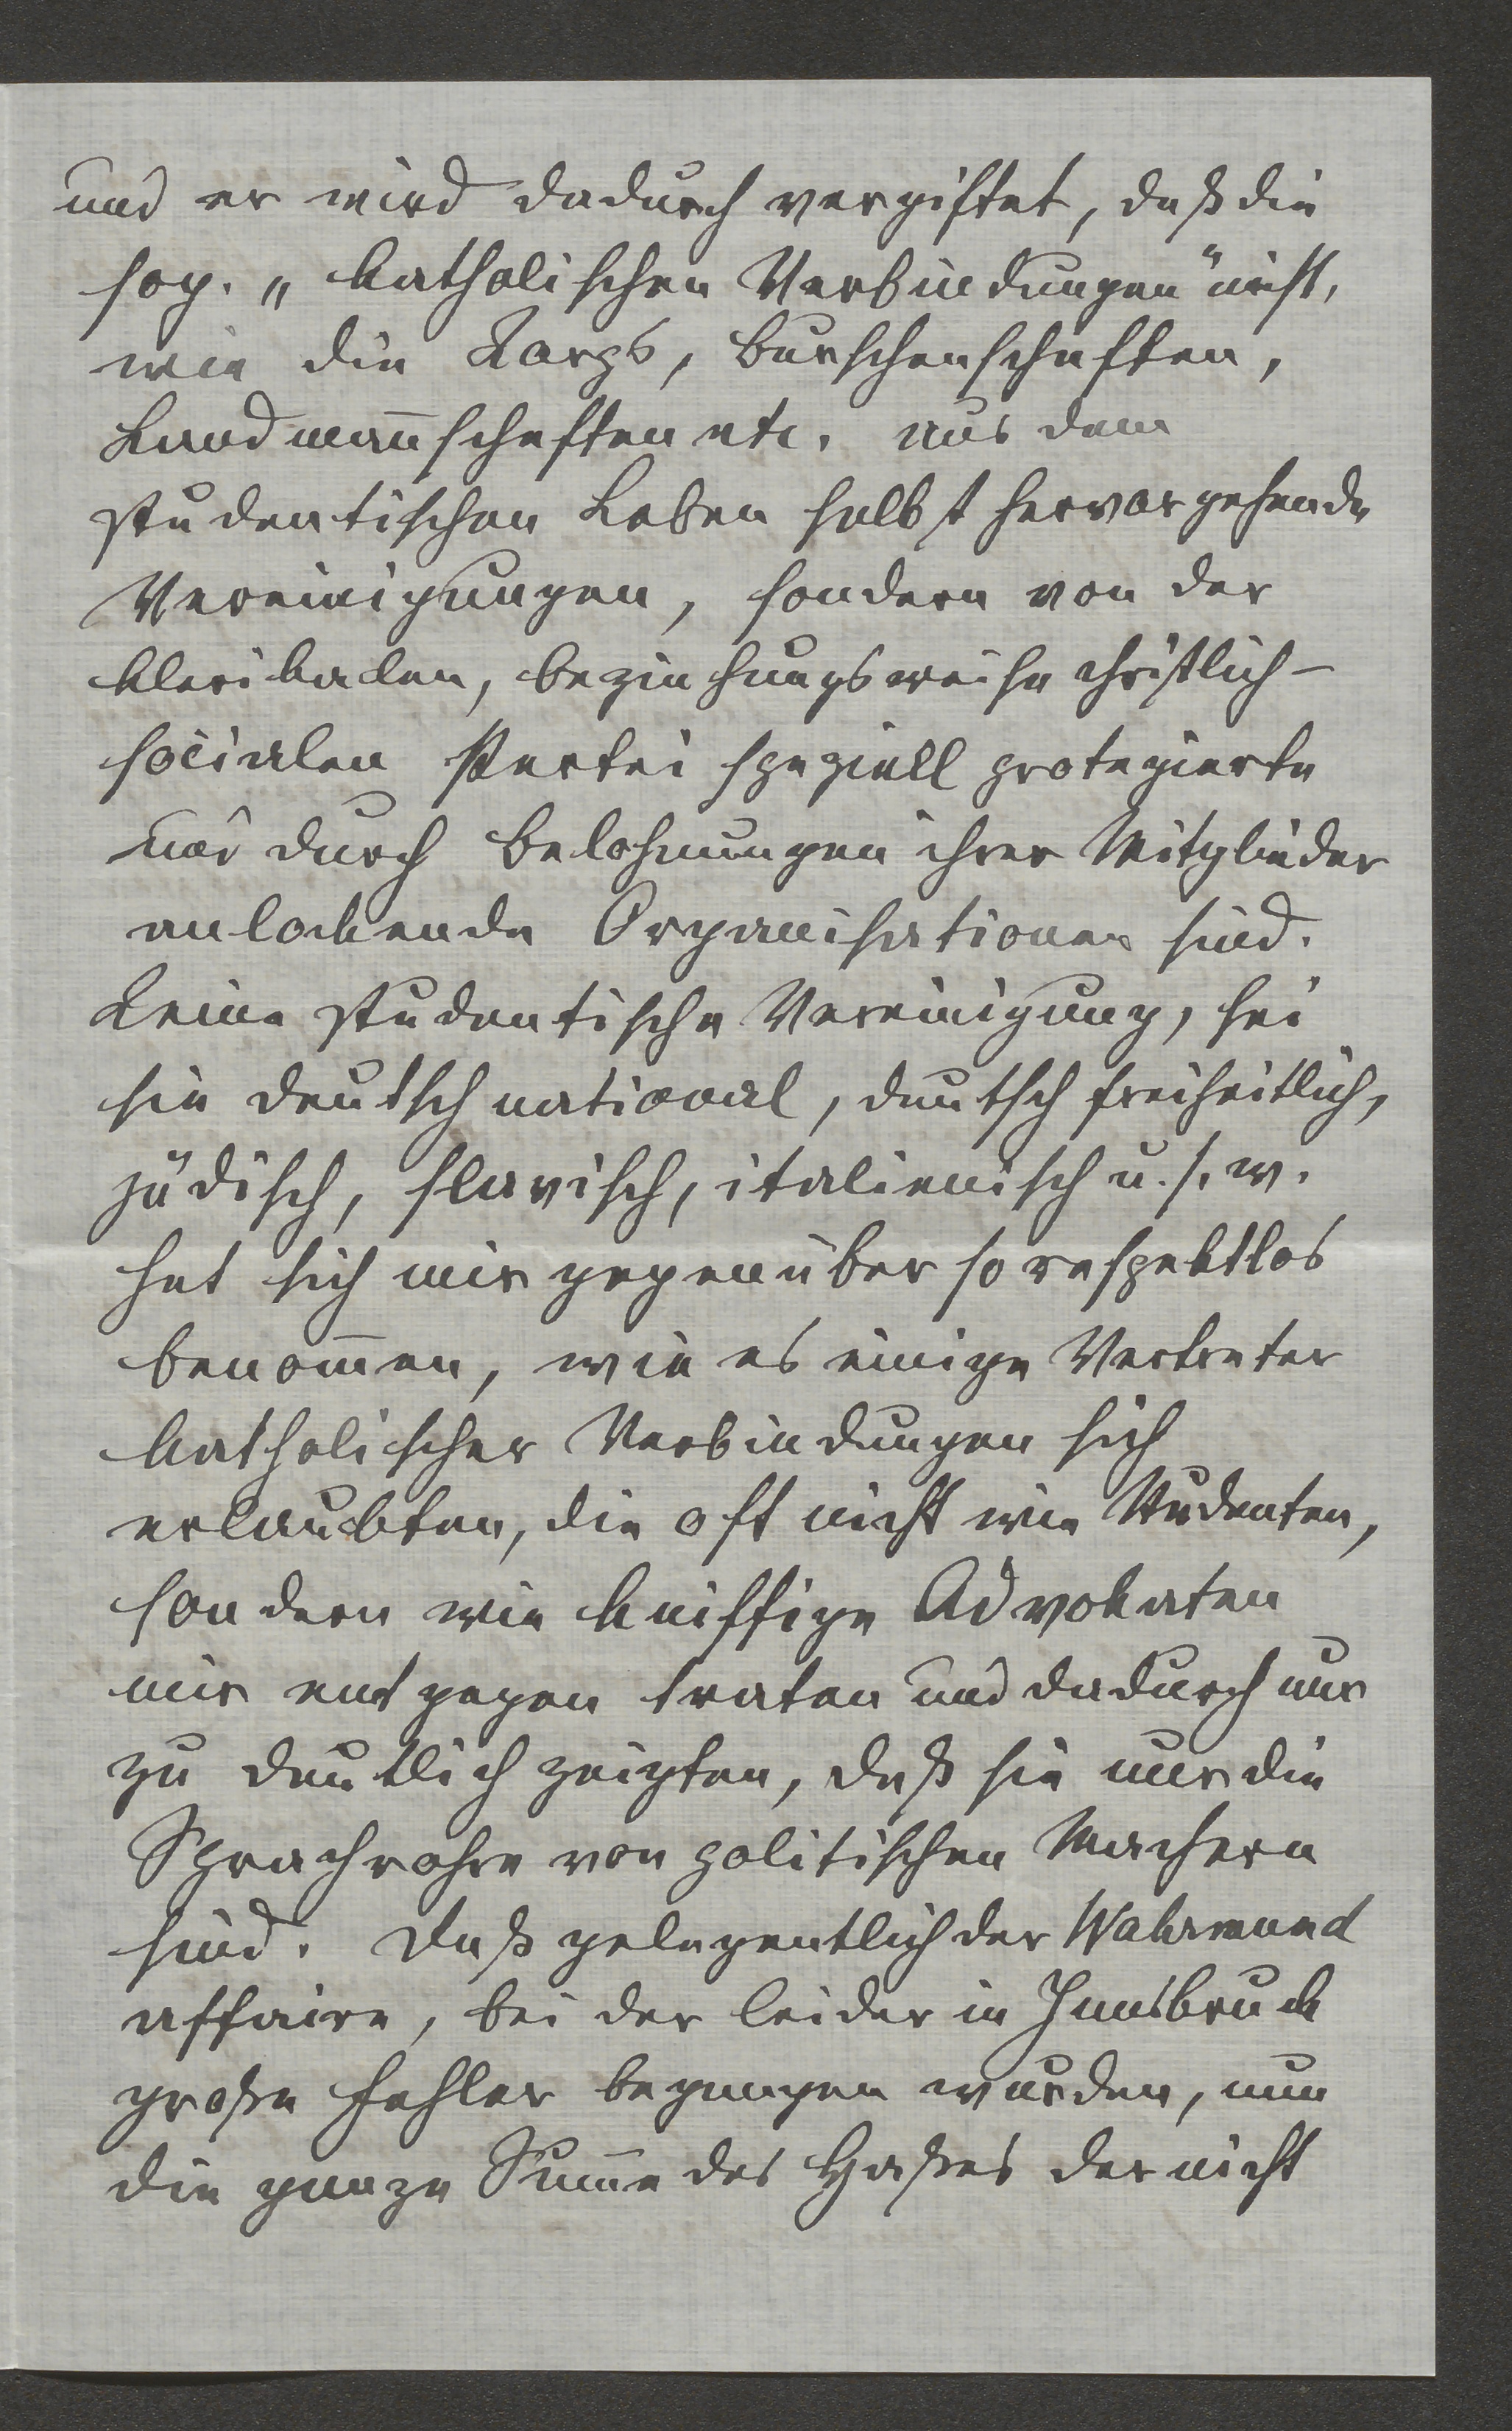 und er wird dadurch vergiftet, daß die
sog. „katholischen Verbindungen" nicht,
wie die Korps, Burschenschaften,
Landmañschaften etc. aus dem
studentischen Leben selbst hervorgehende
Vereinigungen, sondern von der
klerikalen, beziehungsweise christlich-
socialen Partei speziell protegierte
und durch Belohnungen ihrer Mitglieder
anlockende Organisationen sind.
Keine studentische Vereinigung, sei
sie deutsch national, deutsch freiheitlich,
jüdisch, slavisch, italienisch u. s. w.
hat sich mir gegenüber so respektlos
benom̄en, wie es einige Vertreter
katholischer Verbindungen sich
erlaubten, die oft nicht wie Studenten,
sondern wie kniffige Advokaten
mir entgegen traten und dadurch nur
zu deutlich zeigten, daß sie nur die
Sprachrohre von politischen Machern
sind. Daß gelegentlich der Wahrmund
affaire, bei der leider in Innsbruck
große Fehler begangen wurden, nun
die ganze Sum̄e des Haßes der nicht